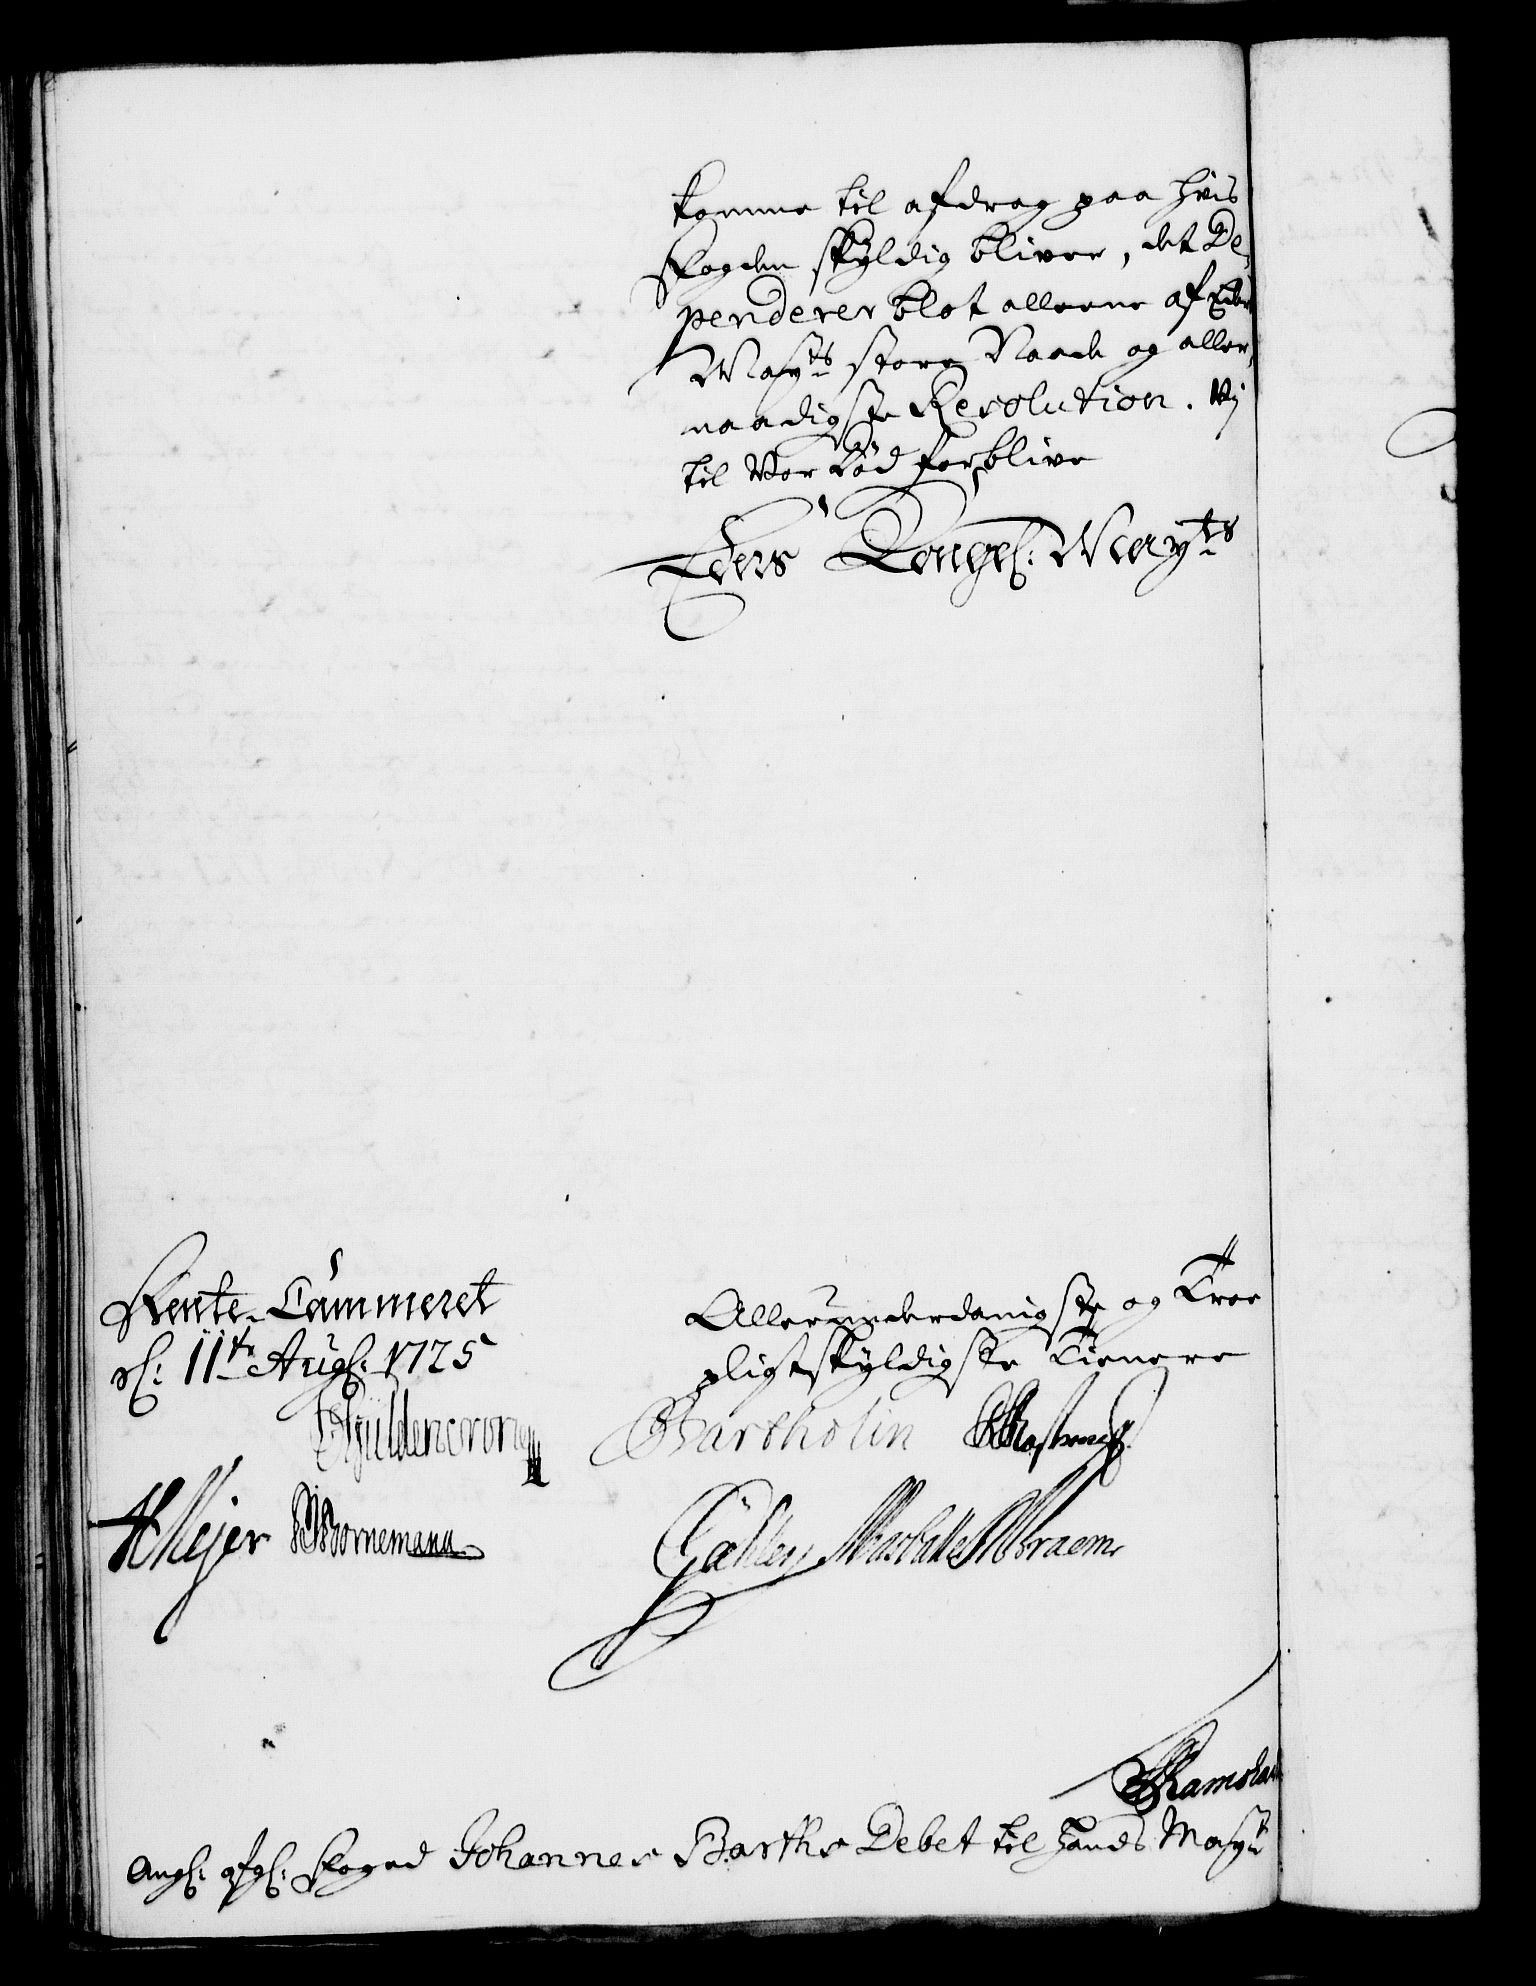 komme til afdrag paa hvis
Fogden skyldig bliver, det De,
penderer blot alleene af Eders
Mayts store Naade og aller,
naadigste Resolution. Vj
til Vor Død forblive
Eders Kongel: Mayts
Rente-Cammeret
d: 11te Aug: 1725
Allerunderdanigste og Troe
pligtskyldigste Tienere
Güldencrone
Bartholin
HMejer Bornemann
Gähler Braem
Ramshart
Ang: afg: Foged Johannes Barths Debet til Hands Mayt